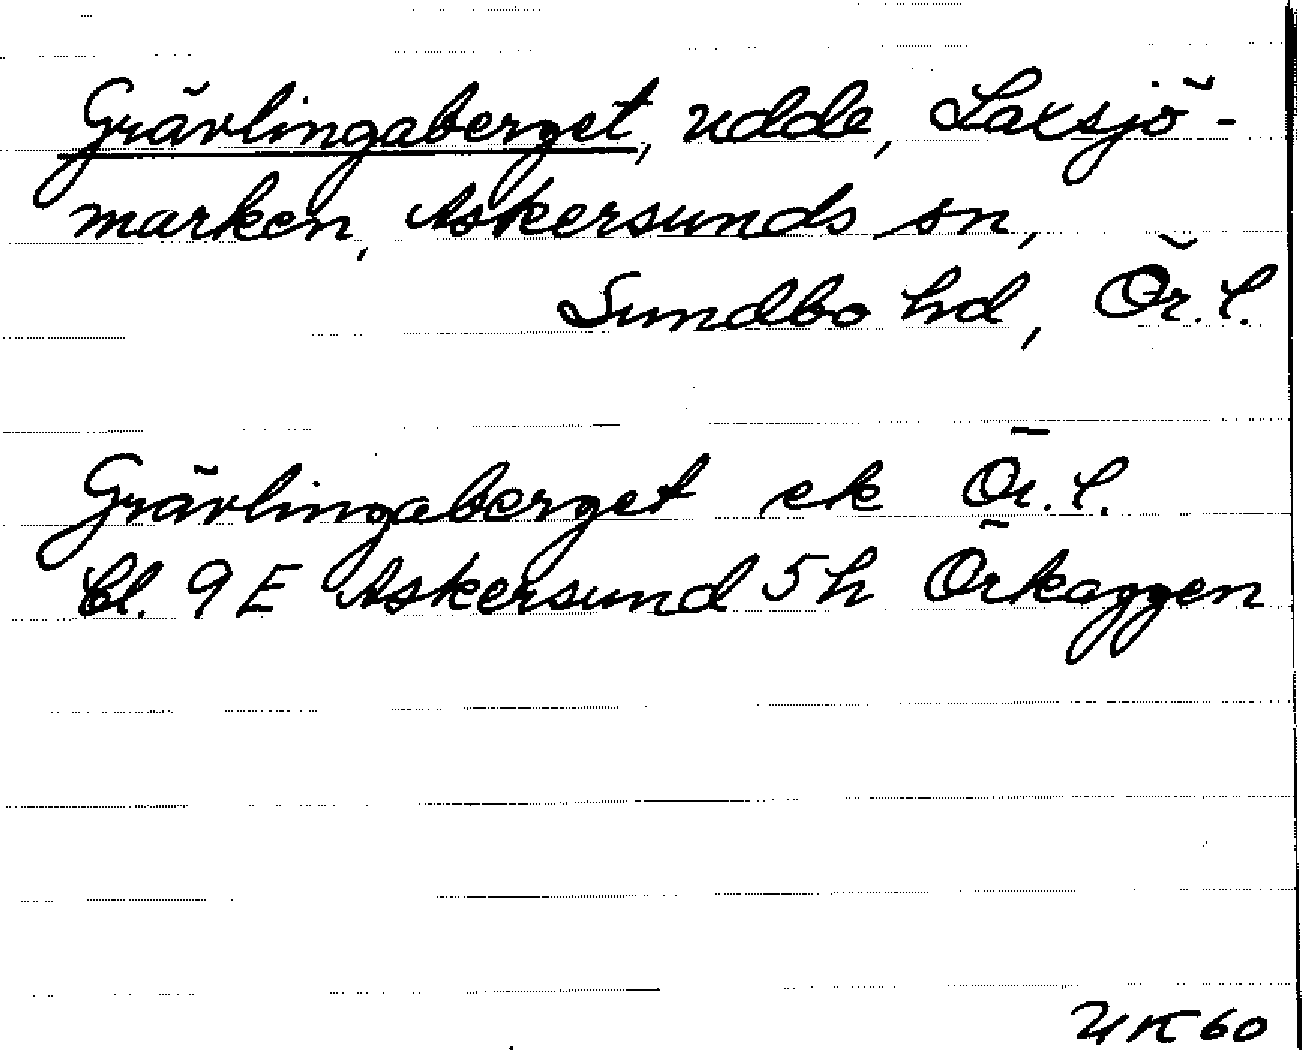 Grävlingaberget, udde, Laxsjö-
marken, Askersunds sn,
Sundbo hd, Ör. l.
Grävlingaberget ek Ör. l.
bl. 9 E Askersund 5 h Örkaggen
UK 60